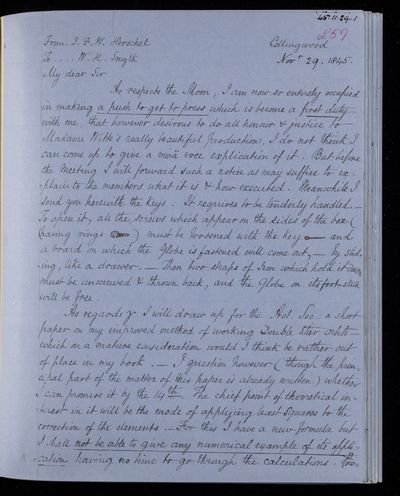 45·11·29·1
257
From J. F. W. Herschel
Collingwood
To .... W. H. Smyth
Novr 29. 1845.
My dear Sir
As respects the Moon, I am now so entirely occupied
in making a push to get to press which is become a first duty
with me, that however desirous to do all honour & justice to
Madame Witte's really beautiful production, I do not think I
can come up to give a viva voce explication of it. But before
the Meeting I will forward such a notice as may suffice to ex
-plain to the members what it is & how executed. Meanwhile I
send you herewith the keys. It requires to be tenderly handled. —
To open it, all the screws which appear on the sides of the box (
(having rings ) must be loosened with the key and
a board on which the Globe is fastened will come out, — by slid-
-ing, like a drawer. — Then two straps of Iron which hold it
must be unscrewed & thrown back, and the Globe on its foot-stalk
will be free.
As regards I will draw up for the Ast Soc. a short
paper on my improved method of working Double Star orbits
which on a mature consideration would I think be rather out
of place in my book. — I question however (though the prin-
-cipal part of the matter of this paper is already written) whether
I can promise it by the 14th. The chief point of theoretical in-
-terest in it will be the mode of applying least squares to the
correction of the elements — For this I have a new formula but
I shall not be able to give any numerical example of its appli-
-cation having no time to go through the calculations. How